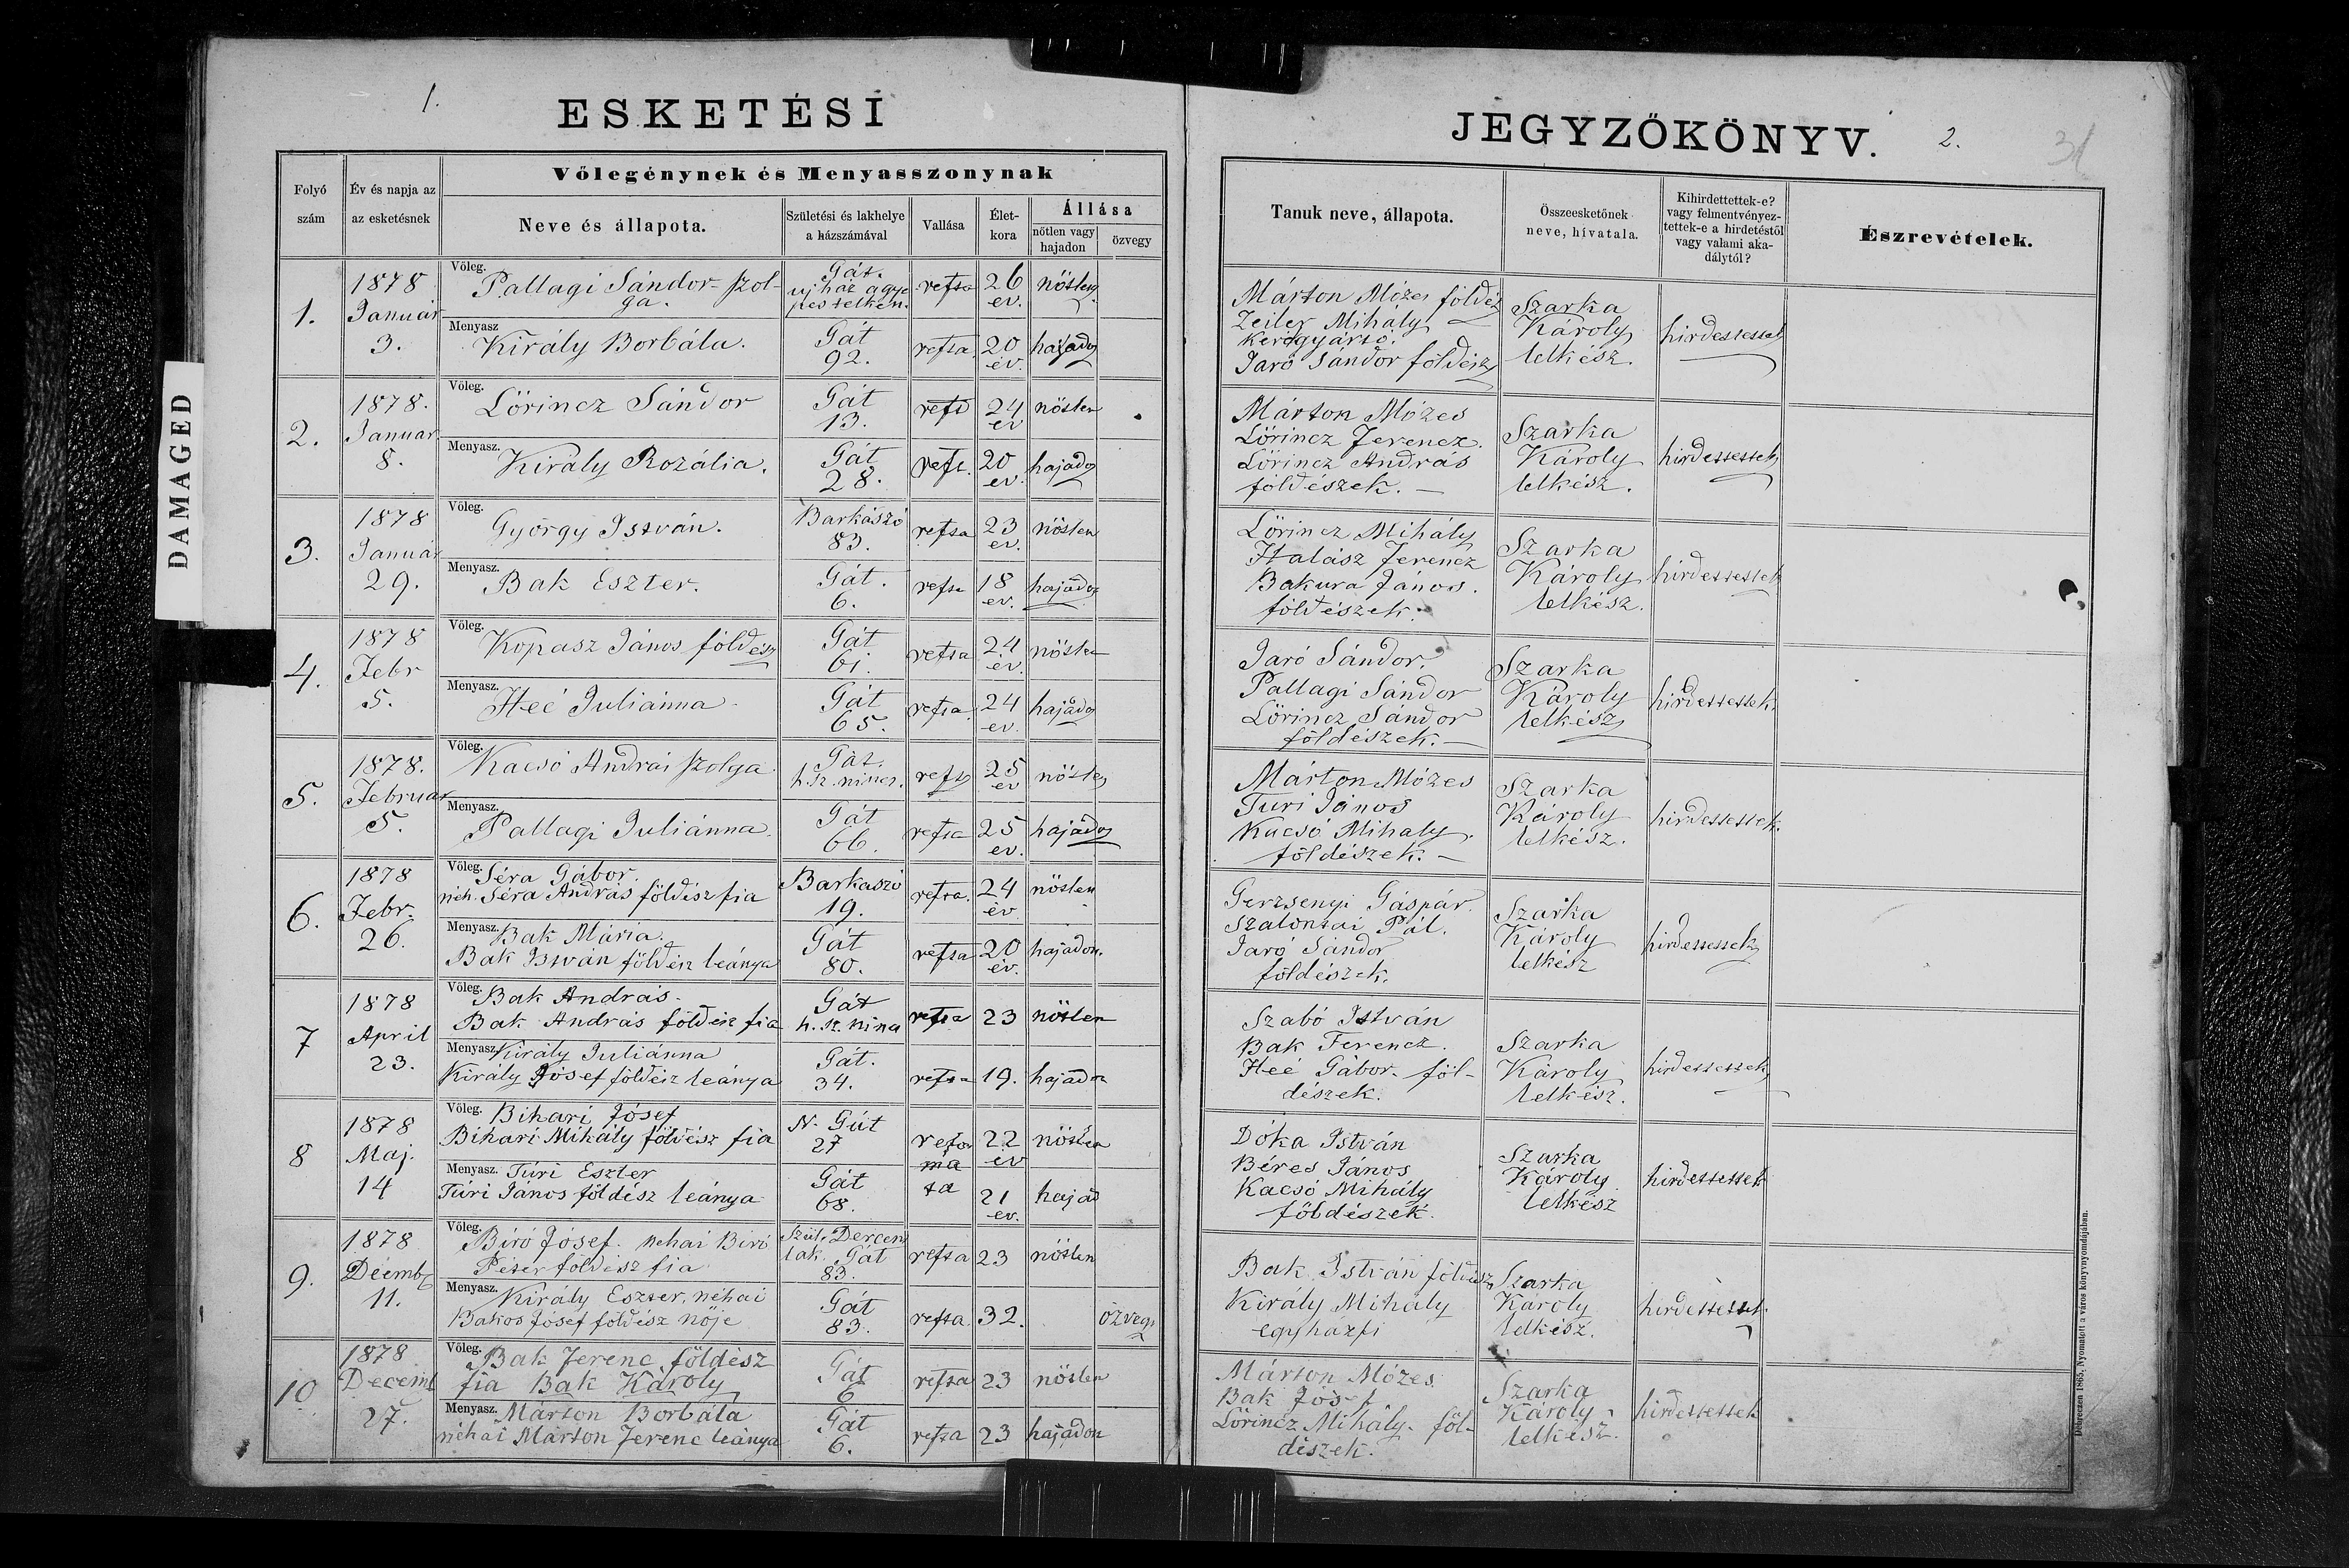 1.
ESKETÉSI
JEGYZŐKÖNYV.
2.
31
DAMAGED
Folyó szám
Év és napja az az esketésnek
Vőlegénynek és Menyasszonynak
Neve és állapota.
Születési és lakhelye a házszámával
Vallása
Élet-kora
Állása
nőtlen vagy hajadon
özvegy
Tanuk neve, állapota.
Összeesketőnek neve, hívatala.
Kihirdettettek-e? vagy felmentvényez-tettek-e a hirdetéstől vagy valami aka-dálytól?
Észrevételek.
1.
1878
Január
3.
Vőleg.
Pallagi Sándor- szol-
ga.
Gát.
refta
26
ev.
nőtlen
Menyasz
Király Borbála.
Gát
92.
refta
20
év.
hajadon
Márton Mózes földész
Zeiler Mihály
Jaró Sándor földész
Szarka
Károly
lelkész.
hirdettettek
2.
1878.
Januar
8.
Vőleg.
Lőrincz Sándor
Gát
13.
reft
24
ev
nőtlen
Menyasz.
Király Rozália.
Gát
28.
reft.
20
ev.
hajadon
Márton Mózes
Lőrincz Ferencz.
Lőrincz András
földészek. —
Szarka
Károly
lelkész.
hirdettettek
3.
1878
Január
29.
Vőleg.
György István.
Barkászó
83.
refta
23
ev.
nőtlen
Menyasz.
Bak Eszter.
Gát.
6.
refta
18
ev.
hajadon
Lőrincz Mihály
Halász Ferencz
Bakura János.
földészek.
Szarka
Károly
lelkész.
hirdettettek
4.
1878
Febr
5.
Vőleg.
Kopasz János földész
Gát
61.
refta
24
év.
nőtlen
Menyasz.
Heé Juliánna
Gát
65.
refta.
24
ev.
hajadon
Jaró Sándor.
Pallagi Sándor
Lőrincz Sándor
földészek. —
Szarka
Károly
lelkész
hirdettettek.
5.
1878.
Februar
5.
Vőleg.
Kacsó András szolga
Gát.
h. sz. nincs.
reft
25
ev
nőtlen
Menyasz.
Pallagi Juliánna.
Gát
66.
refta
25
ev.
hajadon
Márton Mózes
Turi János
Kacsó Mihaly.
földészek. —
Szarka
Károly
lelkész.
hirdettettek.
6.
1878
Febr.
26.
Vőleg.
Séra Gábor.
néh. Séra András földész fia
Barkaszó
19.
refta.
24
év
nőtlen
Menyasz.
Bak Mária.
Bak István földész leánya
Gát
80.
refta
20
év.
hajadon.
Gerzsenyi Gáspár.
Szalontai Pál.
Jaró Sándor
földészek.
Szarka
Károly
lelkész
hirdettettek
7
1878
April
23.
Vőleg.
Bak András.
Bak András földész fia
Gát
refta
23
nőtlen
Menyasz.
Király Juliánna
Király Jósef földész leánya
Gát.
34.
refta
19.
hajadon
Szabó István
Bak Ferencz.
Heé Gábor. föl-
dészek.
Szarka
Károly
lelkész.
hirdettettek
8
1878
Maj.
14
Vőleg.
Bihari Jósef
Bihari Mihály földész fia
N. Gút
27
refor
ma
ta
22
év
nőtlen
Menyasz.
Túri Eszter
Túri János földész leánya
Gát
68.
21
ev.
hajad
Dóka István
Béres János
Kacsó Mihály
földészek.
Szarka
Károly
lelkész
hirdettettek
9.
1878
Decemb
11.
Vőleg.
Biró Jósef. nehai Biró
Péter földész fia
Szül. Dercen
lak. Gát
83.
refta
23
nőtlen
Menyasz.
Király Eszter, néhai
Bakos Jósef földész nője
Gát
83.
refta
32.
özvegy
Bak István földész
Király Mihály
egyházfi
Szarka
Károly
lelkész.
hirdettettek.
10
1878
Decemb
27.
Vőleg.
Bak Ferenc földész
fia Bak Károly
Gát
6
refta
23
nőtlen
Menyasz.
Márton Borbála
néhai Márton Ferenc leánya
Gát
6.
refta
23
hajadon
Márton Mózes
Bak Jósef
Lőrincz Mihály. föl-
dészek.
Szarka
Károly
lelkész.
hirdettettek
Debreczen 1865. Nyomatott a város könyvnyomdájában.